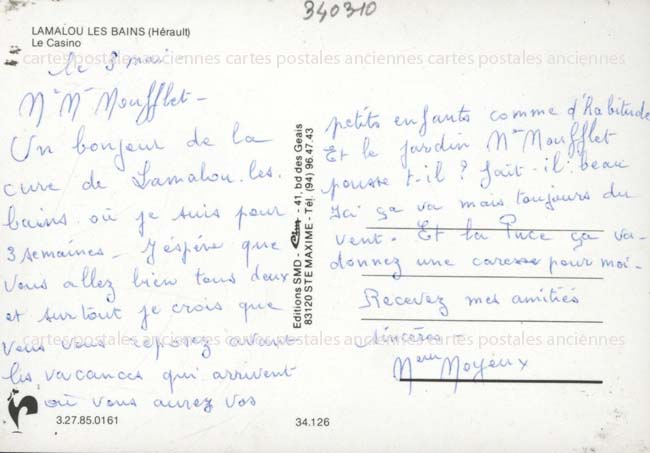 340310
LAMALOU LES BAINS (Hérault)
Le Casino
cartes postales anciennes cartes postales anciennes cartes postales anciennes
le 3 mai
Mr Me Moufflet -
Un bonjour de la
cure de Lamalou. les.
bains où je suis pour
3 semaines - J'éspére que
vous allez bien tous deux
et surtout je crois que
vous vous reposez avant
les vacances qui arrivent
où vous aurez vos
petits enfants comme d'habitude
Et le jardin Mr Moufflet
pousse t-il? fait-il beau
Ici ça va mais toujours du
vent. Et la Puce ça va-
donnez une caresse pour moi-
Recevez mes amitiés
sincères -
Mme Moyeux
Editions SMD - 41, bd des Geais
83120 STE MAXIME - Tél. (94) 96.47.43
cartes postales anciennes cartes postales anciennes cartes postales anciennes
3.27.85.0161
34.126